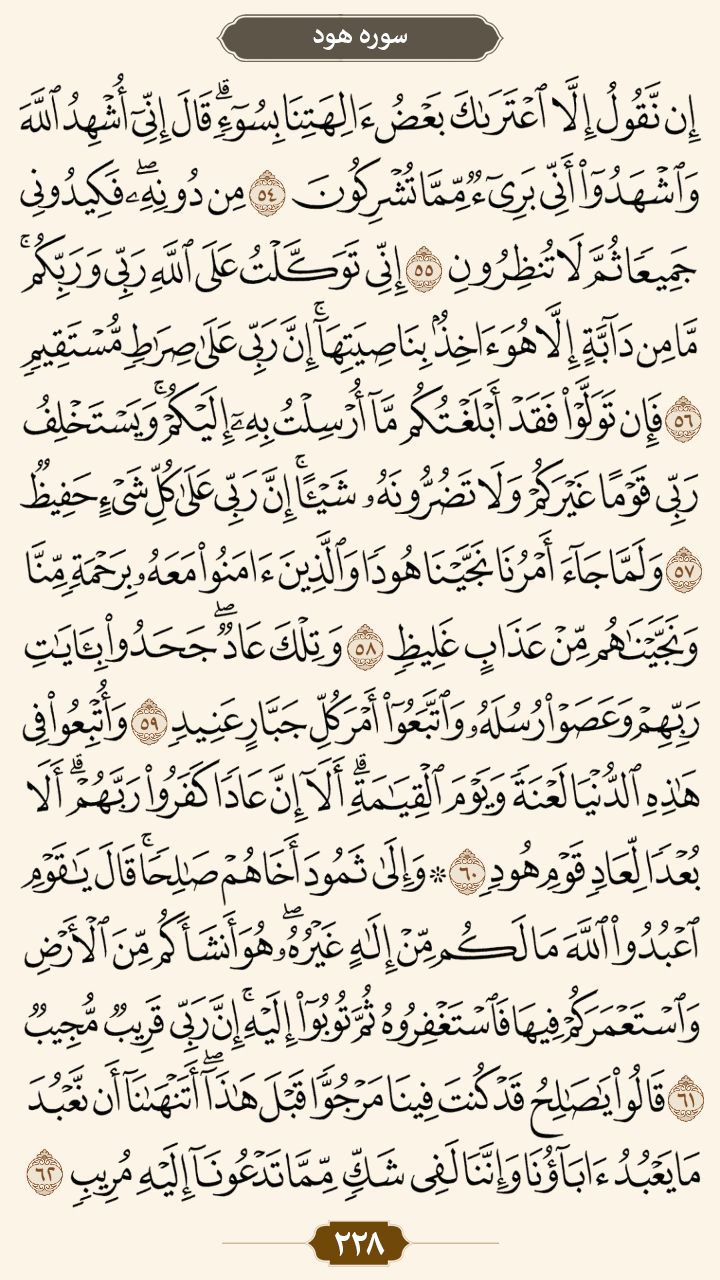 سوره هود
إِن نَّقُولُ إِلَّا ٱعْتَرَىٰكَ بَعْضُ ءَالِهَتِنَا بِسُوٓءٍۗ قَالَ إِنِّىٓ أُشْهِدُ ٱللَّهَ
وَٱشْهَدُوٓا۟ أَنِّى بَرِىٓءٌ مِّمَّا تُشْرِكُونَ ٥٤ مِن دُونِهِۦۖ فَكِيدُونِى
جَمِيعًا ثُمَّ لَا تُنظِرُونِ ٥٥ إِنِّى تَوَكَّلْتُ عَلَى ٱللَّهِ رَبِّى وَرَبِّكُمۚ
مَّا مِن دَآبَّةٍ إِلَّا هُوَ ءَاخِذٌۢ بِنَاصِيَتِهَآۚ إِنَّ رَبِّى عَلَىٰ صِرَٰطٍ مُّسْتَقِيمٍ
٥٦ فَإِن تَوَلَّوْا۟ فَقَدْ أَبْلَغْتُكُم مَّآ أُرْسِلْتُ بِهِۦٓ إِلَيْكُمْۚ وَيَسْتَخْلِفُ
رَبِّى قَوْمًا غَيْرَكُمْ وَلَا تَضُرُّونَهُۥ شَيْـًٔاۚ إِنَّ رَبِّى عَلَىٰ كُلِّ شَىْءٍ حَفِيظٌ
٥٧ وَلَمَّا جَآءَ أَمْرُنَا نَجَّيْنَا هُودًا وَٱلَّذِينَ ءَامَنُوا۟ مَعَهُۥ بِرَحْمَةٍ مِّنَّا
وَنَجَّيْنَٰهُم مِّنْ عَذَابٍ غَلِيظٍ ٥٨ وَتِلْكَ عَادٌۖ جَحَدُوا۟ بِـَٔايَٰتِ
رَبِّهِمْ وَعَصَوْا۟ رُسُلَهُۥ وَٱتَّبَعُوٓا۟ أَمْرَ كُلِّ جَبَّارٍ عَنِيدٍ ٥٩ وَأُتْبِعُوا۟ فِى
هَٰذِهِ ٱلدُّنْيَا لَعْنَةً وَيَوْمَ ٱلْقِيَٰمَةِۗ أَلَآ إِنَّ عَادًا كَفَرُوا۟ رَبَّهُمْۗ أَلَا
بُعْدًا لِّعَادٍ قَوْمِ هُودٍ ٦٠ ۞ وَإِلَىٰ ثَمُودَ أَخَاهُمْ صَٰلِحًاۚ قَالَ يَٰقَوْمِ
ٱعْبُدُوا۟ ٱللَّهَ مَا لَكُم مِّنْ إِلَٰهٍ غَيْرُهُۥۖ هُوَ أَنشَأَكُم مِّنَ ٱلْأَرْضِ
وَٱسْتَعْمَرَكُمْ فِيهَا فَٱسْتَغْفِرُوهُ ثُمَّ تُوبُوٓا۟ إِلَيْهِۚ إِنَّ رَبِّى قَرِيبٌ مُّجِيبٌ
٦١ قَالُوا۟ يَٰصَٰلِحُ قَدْ كُنتَ فِينَا مَرْجُوًّا قَبْلَ هَٰذَآۖ أَتَنْهَىٰنَآ أَن نَّعْبُدَ
مَا يَعْبُدُ ءَابَآؤُنَا وَإِنَّنَا لَفِى شَكٍّ مِّمَّا تَدْعُونَآ إِلَيْهِ مُرِيبٍ ٦٢
٢٢٨